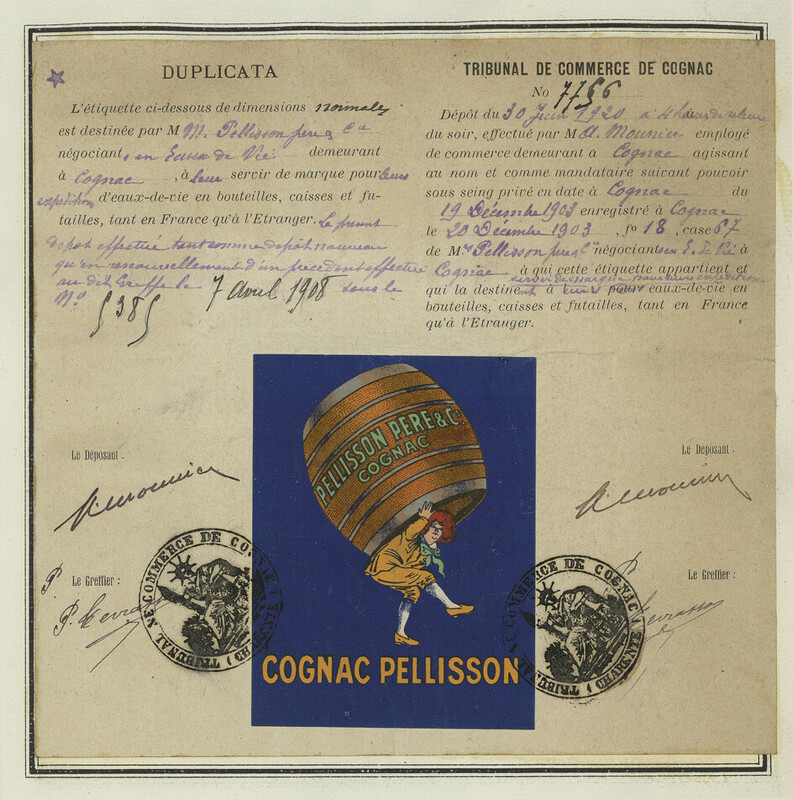 DUPLICATA
L'étiquette ci-dessous de dimensions normales
est destinée par M M. Pellisson père & Cie
négociants en Eaux de Vie demeurant
à Cognac, à leur servir de marque pour leurs
expéditions d'eaux-de-vie en bouteilles, caisses et fu-
tailles, tant en France qu'à l'Etranger. Le présent
dépôt effectué tant comme dépôt nouveau
qu'en renouvellement d'un précédent effectué
au dit Greffe le 7 Avril 1908 sous le
No 5385
TRIBUNAL DE COMMERCE DE COGNAC
No 7756
Dépôt du 30 Juin 1920 à 4 heures
du soir, effectué par M A. Mounier employé
de commerce demeurant à Cognac agissant
au nom et comme mandataire suivant pouvoir
sous seing privé en date à Cognac du
19 Décembre 1903 enregistré à Cognac
le 20 Décembre 1903, fo 18, case 67
de M. Pellisson père & Cie négociants en E. de Vie à
Cognac à qui cette étiquette appartient et
qui la destinent à servir de marque pour leurs expéditions
eaux-de-vie en
bouteilles, caisses et futailles, tant en France
qu'à l'Etranger.
PELLISSON PERE & Co
COGNAC
COGNAC PELLISSON
Le Déposant :
Le Greffier :
TRIBUNAL DE COMMERCE DE COGNAC (CHARENTE)
Le Déposant :
Le Greffier :
TRIBUNAL DE COMMERCE DE COGNAC (CHARENTE)